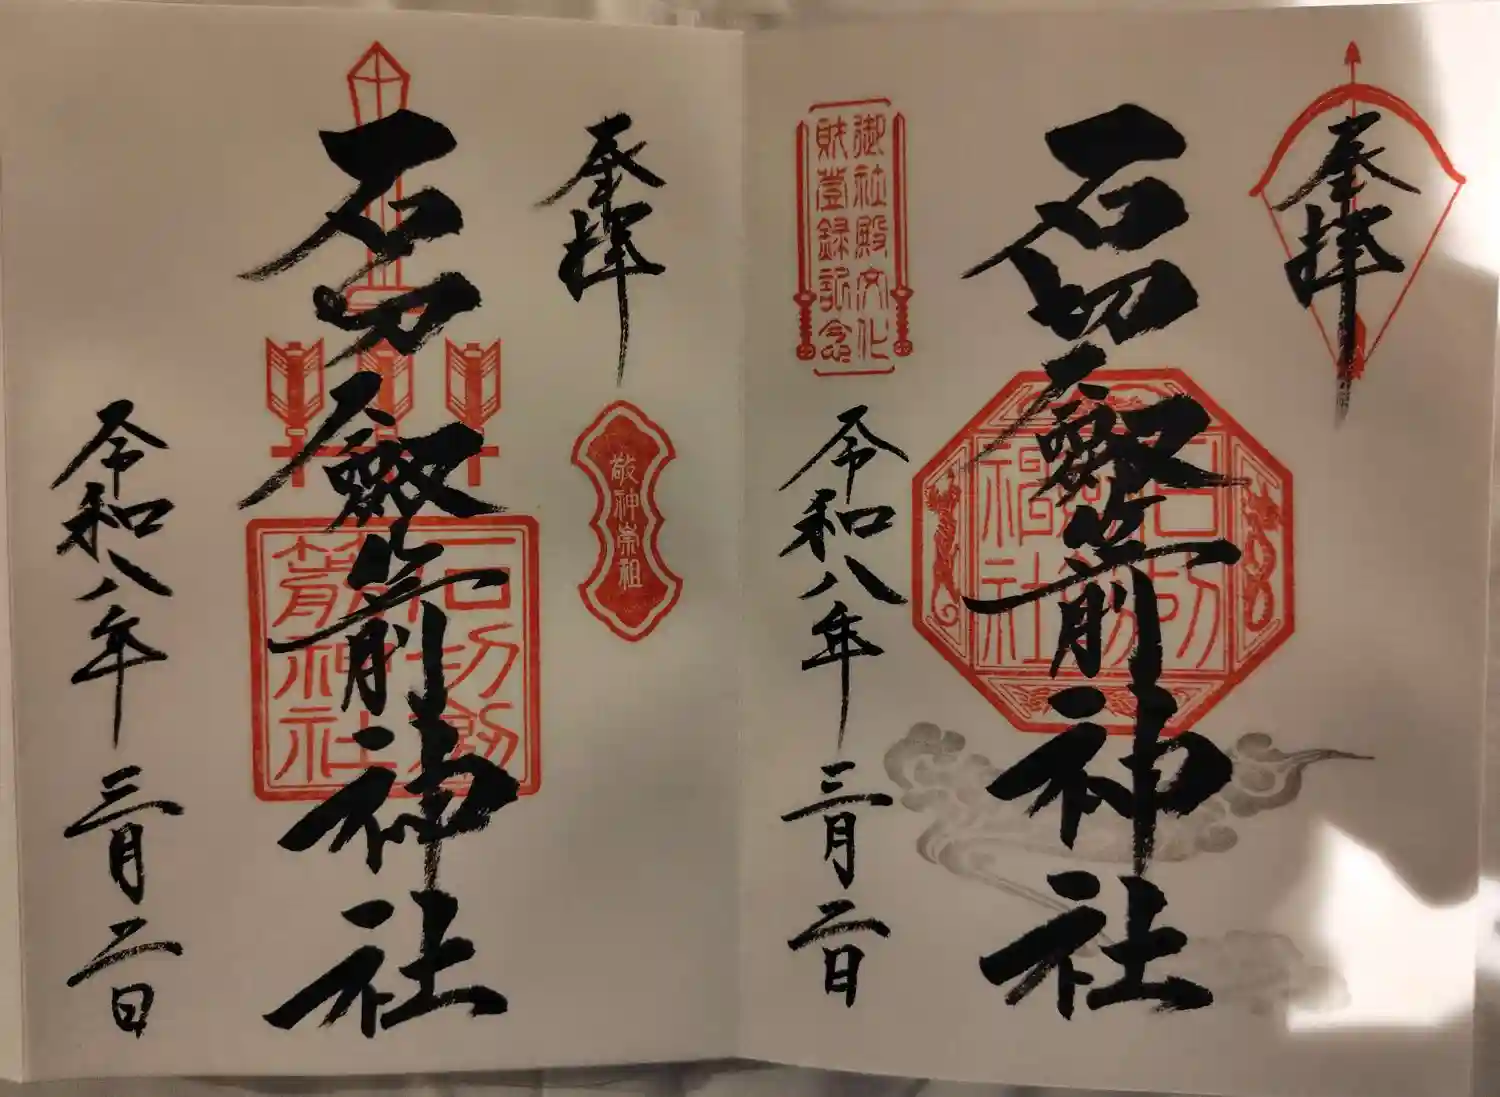 奉拝
石切劔箭神社
御社殿文化
財登録記念
令和八年三月二日
石切
社
奉拝
石切劔箭神社
敬神崇祖
令和八年三月二日
石切劔
箭神社